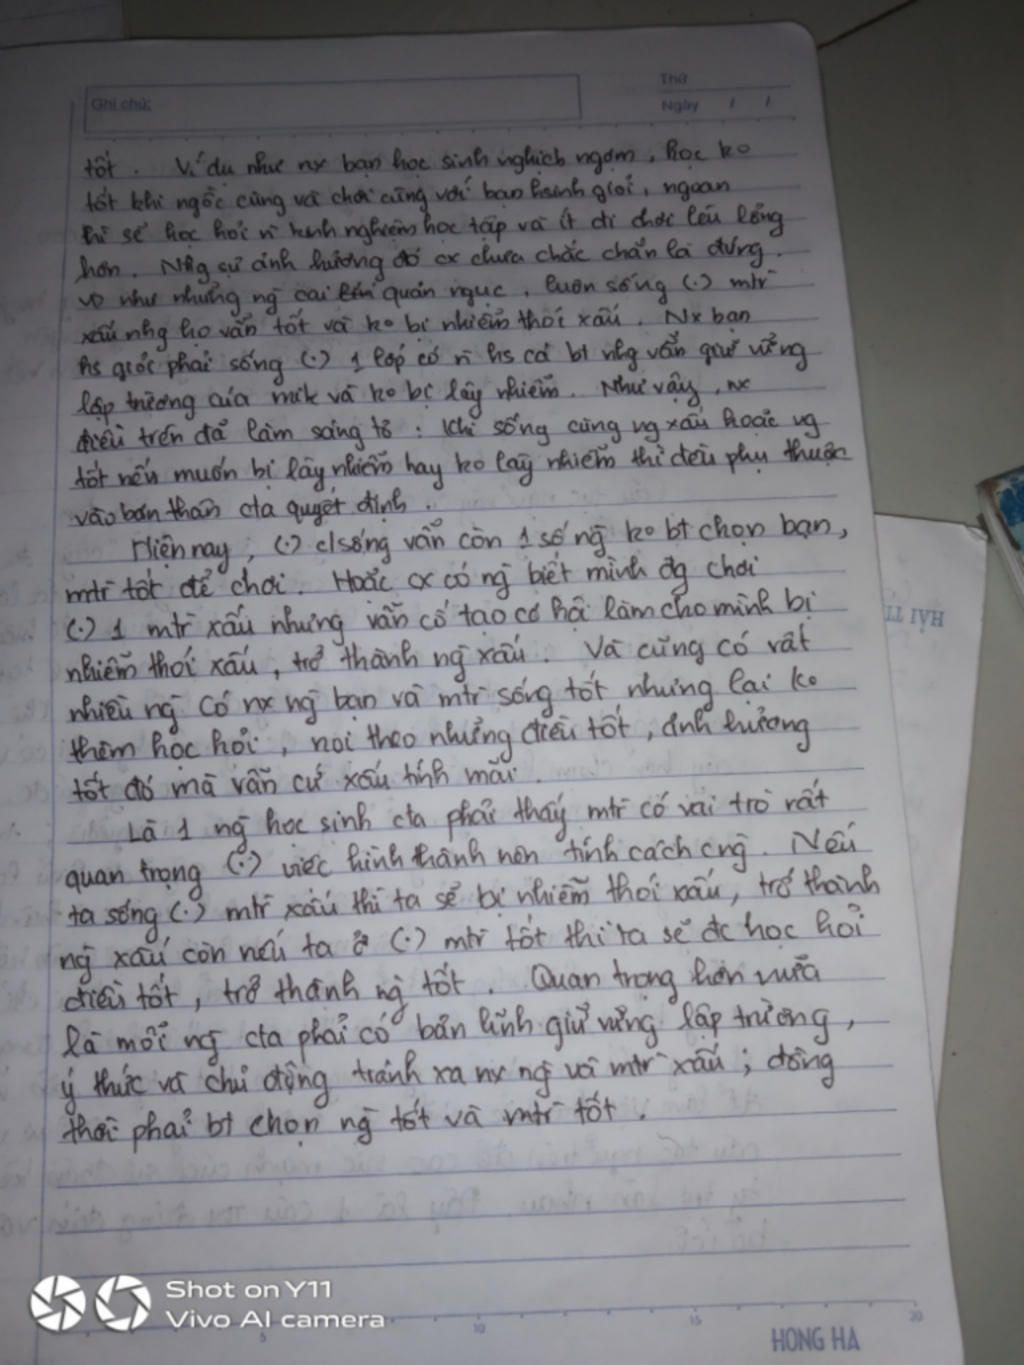 Ghi chú:
Thứ
Ngày / /
tốt. Ví dụ như nx bạn học sinh nghịch ngợm, học ko
tốt khi ngồi cùng và chơi cùng với bạn giỏi, ngoan
thì sẽ học hỏi n kinh nghiệm học tập và ít đi chơi lêu lổng
hơn. Nhg sự ảnh hưởng đó cx chưa chắc chắn là đúng.
VD như những ng̀ cai quản ngục, luôn sống (.) mtr̀
xấu nhg họ vẫn tốt và ko bị nhiễm thói xấu. Nx bạn
hs giỏi phải sống (.) 1 lớp có n̄ hs cá bt nhg vẫn giữ vững
lập trường của mik và ko bị lây nhiễm. Như vậy, nx
điều trên đã làm sáng tỏ: Khi sống cùng ng xấu hoặc ng
tốt nếu muốn bị lây nhiễm hay ko lây nhiễm thì đều phụ thuộc
vào bản thân cta quyết định.
Hiện nay, (.) c/sống vẫn còn 1 số ng̀ ko bt chọn bạn,
mtr̀ tốt để chơi. Hoặc cx có ng̀ biết mình đg chơi
(.) 1 mtr̀ xấu nhưng vẫn cố tạo cơ hội làm cho mình bị
nhiễm thói xấu, trở thành ng̀ xấu. Và cũng có rất
nhiều ng̀ có nx ng̀ bạn và mtr̀ sống tốt nhưng lại ko
thèm học hỏi, noi theo những điều tốt, ảnh hưởng
tốt đó mà vẫn cứ xấu tính mãi.
Là 1 ng̀ học sinh cta phải thấy mtr̀ có vai trò rất
quan trọng (.) việc hình thành nên tính cách cng̀. Nếu
ta sống (.) mtr̀ xấu thì ta sẽ bị nhiễm thói xấu, trở thành
ng̀ xấu còn nếu ta ở (.) mtr̀ tốt thì ta sẽ đc học hỏi
điều tốt, trở thành ng̀ tốt. Quan trọng hơn nữa
là mỗi ng̀ cta phải có bản lĩnh giữ vững lập trường,
ý thức và chủ động tránh xa nx ng̀ và mtr̀ xấu; đồng
thời phải bt chọn ng̀ tốt và mtr̀ tốt.
Shot on Y11
Vivo AI camera
5 10 15 20
HONG HA